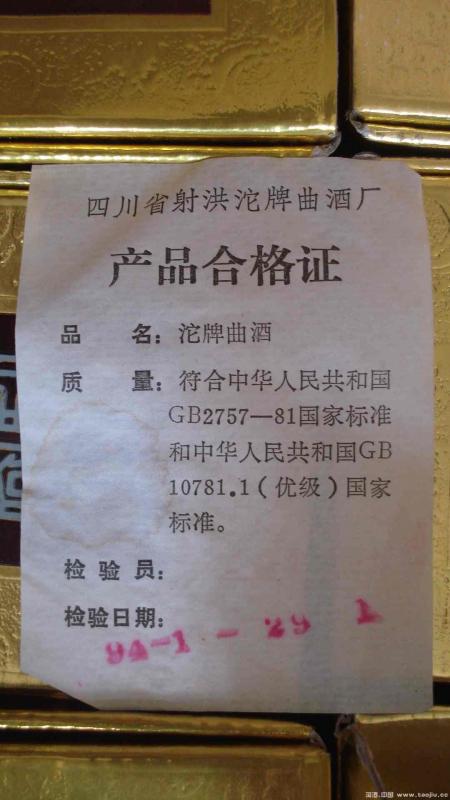 四川省射洪沱牌曲酒厂
产品合格证
品 名：沱牌曲酒
质 量：符合中华人民共和国
GB2757—81国家标准
和中华人民共和国GB
10781.1（优级）国家
标准。
检 验 员：
检验日期：
94-1-29 1
www.taojiu.cc